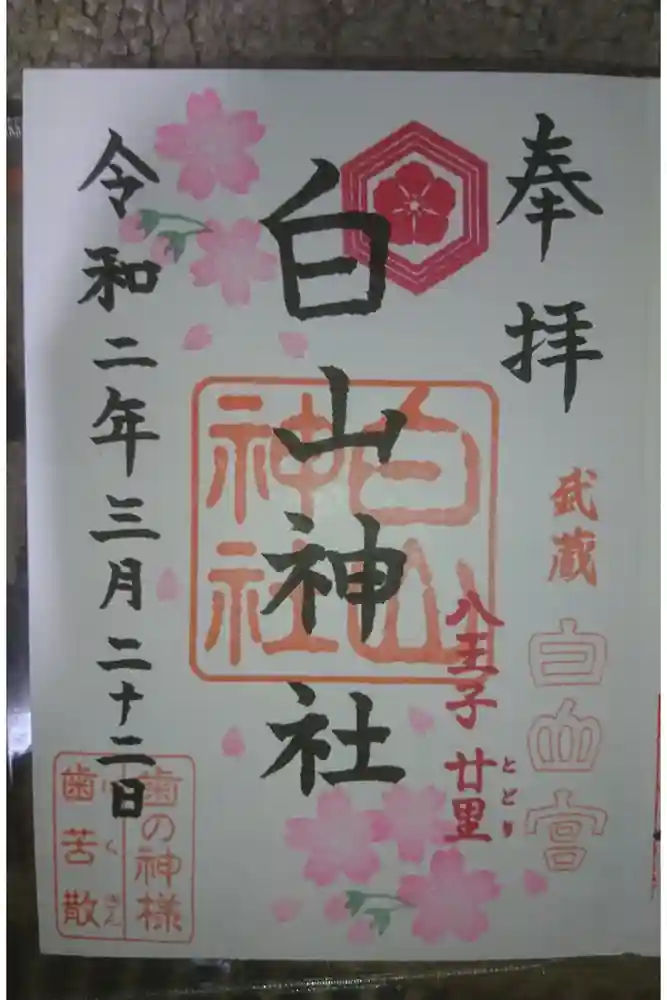 奉拝
武蔵
八王子 廿里
とどり
白山神社
白山
神社
令和二年三月二十二日
歯の神様
歯苦散
くさん